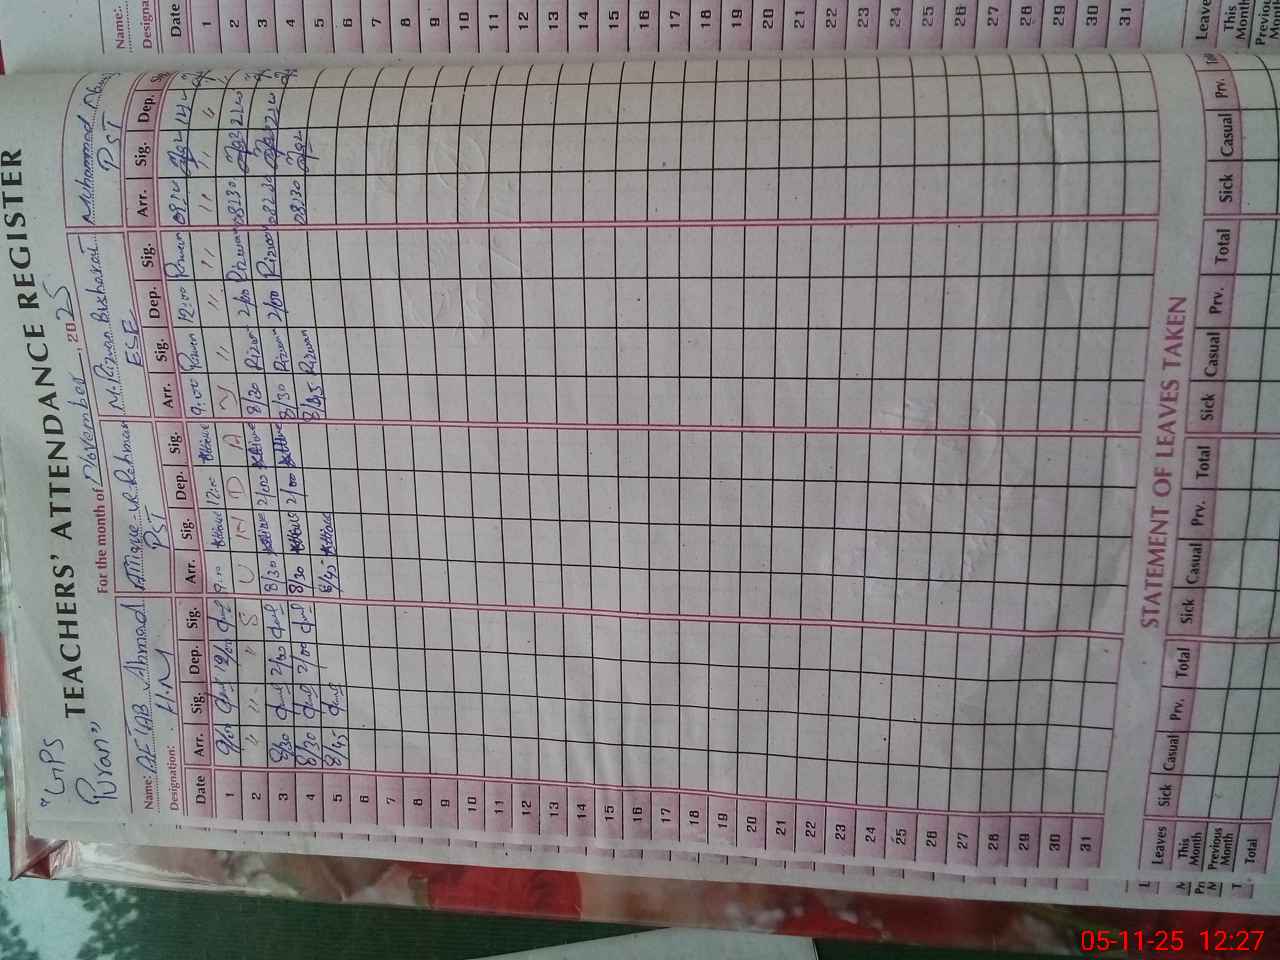 "GPS
Puran"
TEACHERS' ATTENDANCE REGISTER
For the month of November, 2025
Name: AFTAB Ahmad Attique ur Rehman M. Rizwan Basharat Muhammad
Designation: H.M PST ESE PST
Date Arr. Sig. Dep. Sig. Arr. Sig. Dep. Sig. Arr. Sig. Dep. Sig. Arr. Sig. Dep. Sig.
1 9/00 12/00 9:00 Attique 12:00 Attique 9:00 Rizwan 12:00 Rizwan
2 " " " S U N D A Y " " " " " "
3 8/30 2/00 8/30 Attique 2/00 Attique 8/30 Rizwan 2/00 Rizwan 08:30
4 8/30 2/00 8/30 Attique 2/00 Attique 8/30 Rizwan 2/00 Rizwan 08:30
5 8/45 8/45 Attique 8/45 Rizwan 08:30
6
7
8
9
10
11
12
13
14
15
16
17
18
19
20
21
22
23
24
25
26
27
28
29
30
31
STATEMENT OF LEAVES TAKEN
Leaves Sick Casual Prv. Total Sick Casual Prv. Total Sick Casual Prv. Total Sick Casual Prv.
This Month
Previous Month
Total
Name:
Designa
Date
1
2
3
4
5
6
7
8
9
10
11
12
13
14
15
16
17
18
19
20
21
22
23
24
25
26
27
28
29
30
31
Leave
This
Month
Previous
05-11-25 12:27